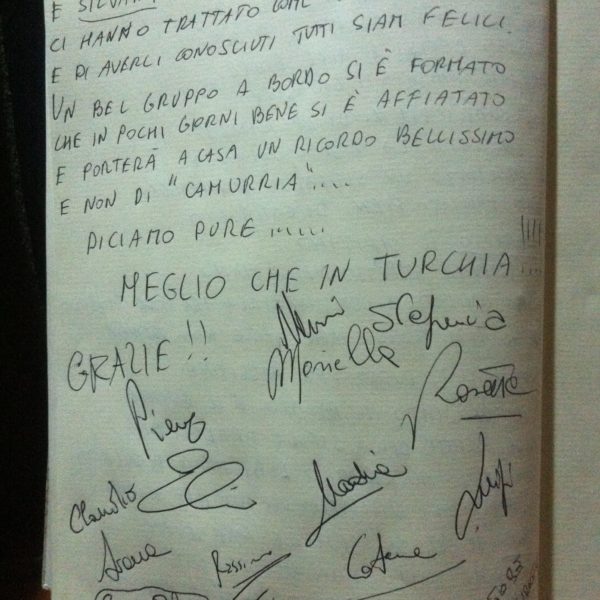 E SILVA
CI HANNO TRATTATO COME
E DI AVERLI CONOSCIUTI TUTTI SIAM FELICI.
UN BEL GRUPPO A BORDO SI È FORMATO
CHE IN POCHI GIORNI BENE SI È AFFIATATO
E PORTERÀ A CASA UN RICORDO BELLISSIMO
E NON DI "CAMURRIA"....
DICIAMO PURE ......
MEGLIO CHE IN TURCHIA !!!!
GRAZIE !!
Stefania
Mariella
Rosetta
Piero
Claudio
Nadia
Luigi
Ivana
Rossino
Catena